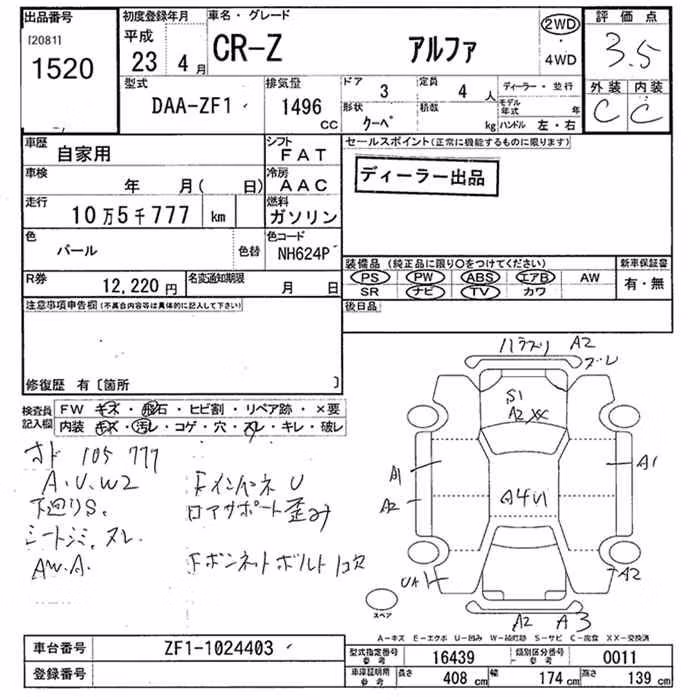 出品番号
[2081]
1520
初度登録年月
平成
23 4 月
車名・グレード
CR-Z アルファ
2WD
・
4WD
評価点
3.5
外装 内装
C C
型式
DAA-ZF1
排気量
1496
CC
ドア 3
形状 クーペ
定員 4 人
積数 kg
ディーラー ・ 並行
モデル年式 年
ハンドル 左・右
車歴
自家用
シフト
FAT
車検
年 月( 日)
冷房
AAC
走行
10万5千777 km
燃料
ガソリン
色
パール
色替
色コード
NH624P
R券
12,220 円
名変通知期限
月 日
セールスポイント(正常に機能するものに限ります)
ディーラー出品
装備品 (純正品に限り○をつけてください)
PS PW ABS エアB AW
SR ナビ TV カワ
新車保証書
有・無
後日品
注意事項申告欄(不具合内容等は具体的に記入して下さい)
修復歴 有〔箇所 〕
検査員
記入欄
FW キズ・飛石・ヒビ割・リペア跡・×要
内装 キズ・汚レ・コゲ・穴・スレ・キレ・破レ
オド 105777
A.U.W2
下廻りS.
シートシミ.スレ.
AW.A.
FインパネU
ロアサポート歪み
Fボンネットボルトコヨ
A2
ズレ
S1
A2 XX
A1
A2
A4U
A1
UA
A2
A2 A3
スペア
A-キズ E-エクボ U-凹み W-補修跡 S-サビ C-腐食 XX-交換済
車台番号
ZF1-1024403
登録番号
型式指定番号
参考
16439
類別区分番号
参考
0011
車庫証明用
参考
長さ 408 cm
幅 174 cm
高さ 139 cm